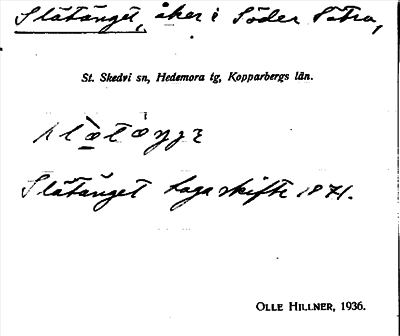 Slätänget, åker i Söder Sätra,
St. Skedvi sn, Hedemora tg, Kopparbergs län.
Slätänget laga skifte 1871.
OLLE HILLNER, 1936.